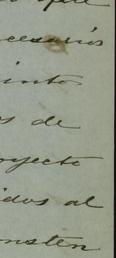 cesarios
into
s de
oyecto
idos al
onsten